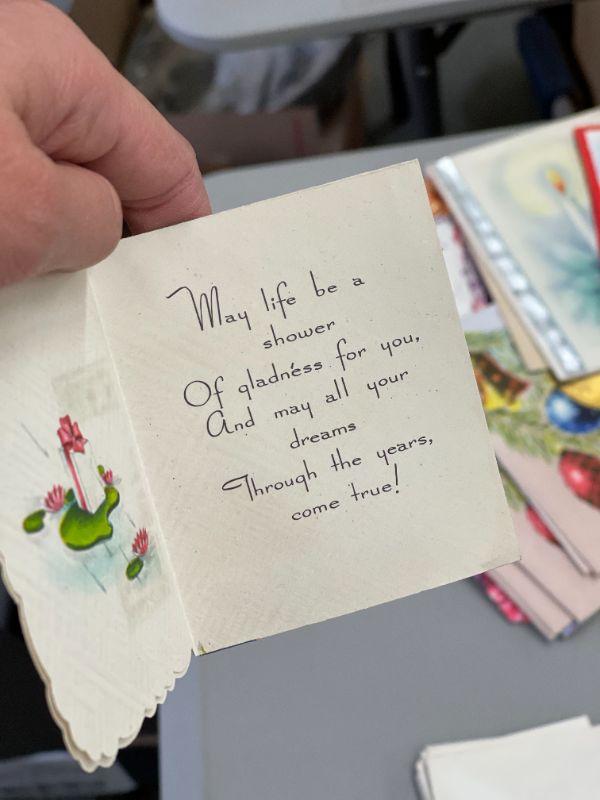 May life be a
shower
Of gladness for you,
And may all your
dreams
Through the years,
come true!